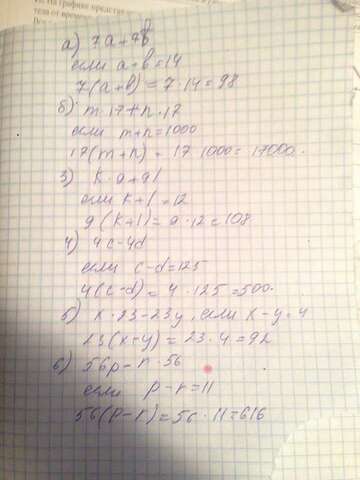 На графике представ
тела от времен
а) 7a+7b
если a+b=14
7(a+b) = 7·14=98
б) m·17+n·17
если m+n=1000
17(m+n) = 17·1000=17000.
3) k·9+9l
если k+l=12
9(k+l)=9·12=108
4) 4c-4d
если c-d=125
4(c-d)=4·125=500.
5) x·23-23y, если x-y=4
23(x-y)=23·4=92
6) 56p-n·56
если p-n=11
56(p-n)=56·11=616